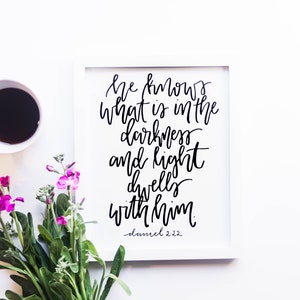 he knows
what is in the
darkness
and light
dwells
with him.
daniel 2:22